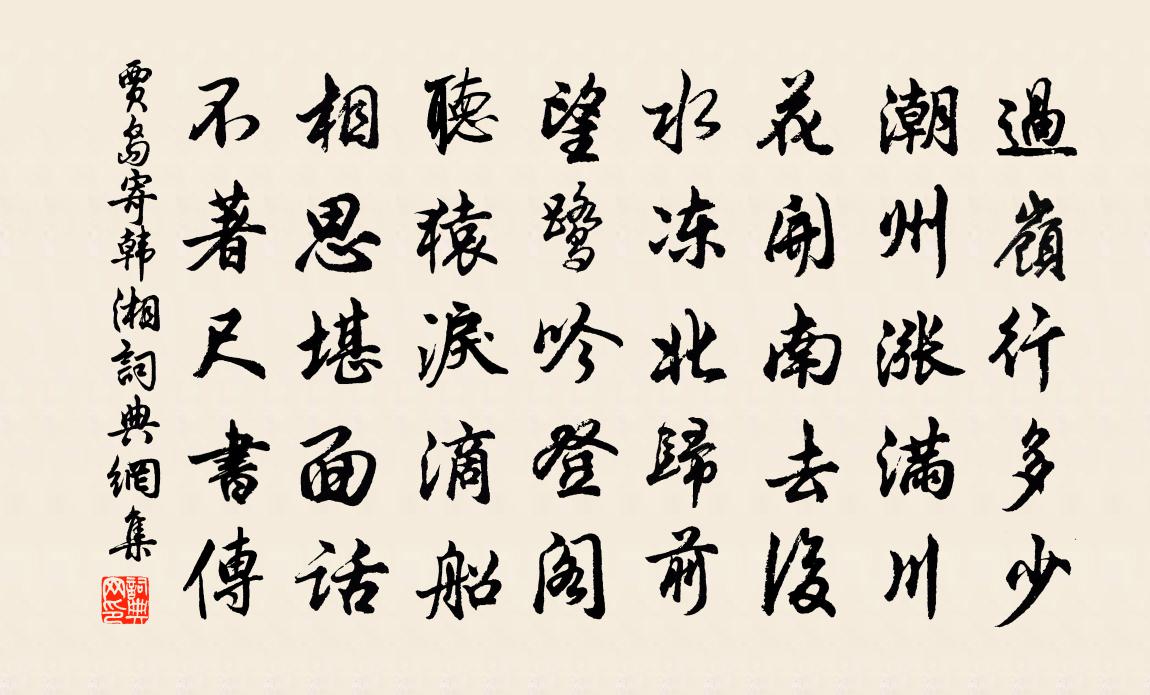 過嶺行多少
潮州漲滿川
花開南去後
水凍北歸前
望鷺吟登閣
聽猿淚滴船
相思堪面話
不著尺書傳
賈島寄韩湘詞典網集
詞典網印